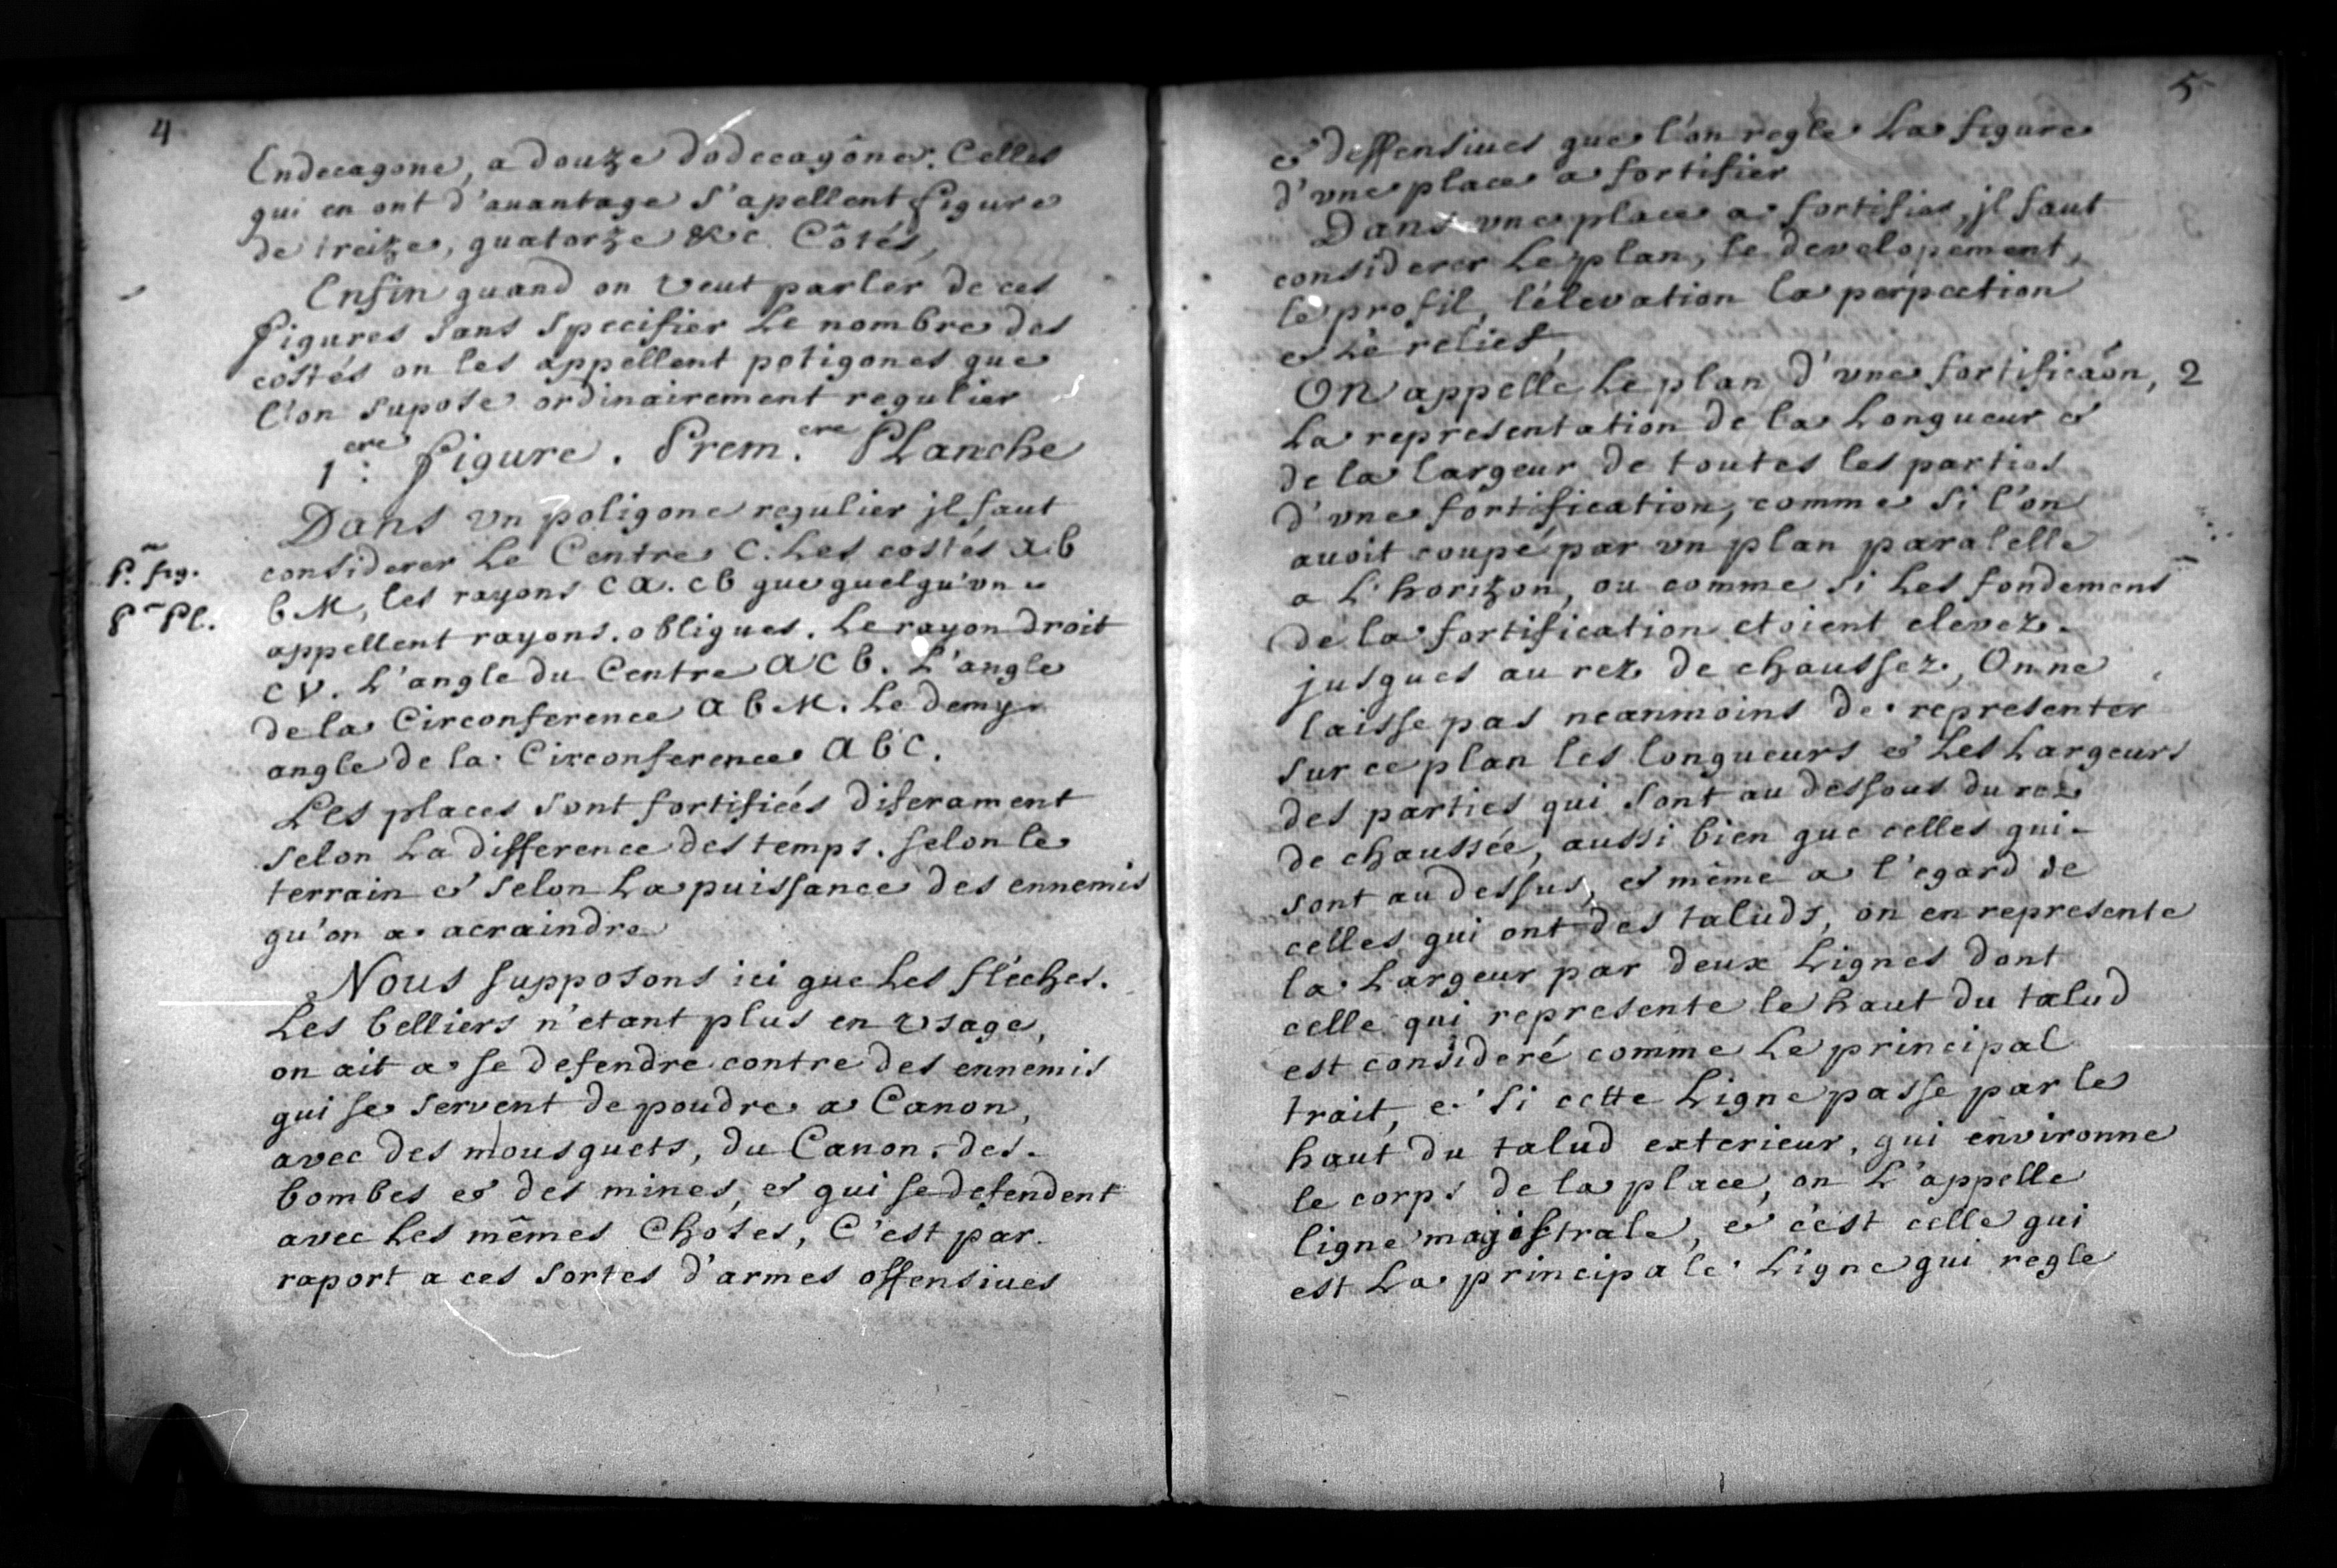 4
Endecagone, a douze dodecagône. Celles
qui en ont d'auantage s'apellent figure
de treize, quatorze &c. Côtés,
Enfin quand on veut parler de ces
figures sans specifier le nombre des
costés on les appellent poligones que
l'on supose ordinairement regulier
1ere: figure. Prem.ere PLanche
Dans vn poligone regulier jl faut
considerer Le Centre C. Les costés ab
P.~ fig.
bM, les rayons ca. cb que quelqu'vn
P~ Pl.
appellent rayons. obliques. Le rayon droit
CV. L'angle du Centre acb. L'angle
de la Circonference abM. Le demy
angle de la Circonference abc.
Les places sont fortifiées diferament
selon La difference des temps. selon le
terrain & selon La puissance des ennemis
qu'on a acraindre
Nous supposons ici que Les fléches.
Les belliers n'etant plus en vsage,
on ait a se defendre contre des ennemis
qui se servent de poudre a Canon,
avec des mousquets, du Canon. des
bombes & des mines, & qui se defendent
avec Les mêmes Choses, C'est par
raport a ces sortes d'armes offensiues
5
& deffensiues que l'on regle La figure
d'vne place a fortifier
Dans vne place a fortifier, jl faut
considerer Le plan, le developement,
le profil, l'élevation la perpection
& Le relief,
ON appelle Le plan d'vne fortificãon, 2
La representation de la Longueur &
de la largeur de toutes les parties
d'vne fortification, comme si l'on
auoit coupé par vn plan paralelle
a L'horizon, ou comme si Les fondemens
de la fortification etoient elevez
jusques au rez de chaussez, On ne
laisse pas neanmoins de representer
sur ce plan les longueurs & Les Largeurs
des parties qui sont au dessous du rez
de chaussée, aussi bien que celles qui
sont au dessus, & même a l'egard de
celles qui ont des taluds, on en represente
la Largeur par deux Lignes dont
celle qui represente le haut du talud
est consideré comme Le principal
trait, & si cette Ligne passe par le
haut du talud exterieur, qui environne
le corps de la place, on L'appelle
ligne magistrale, & c'est celle qui
est La principale Ligne qui regle